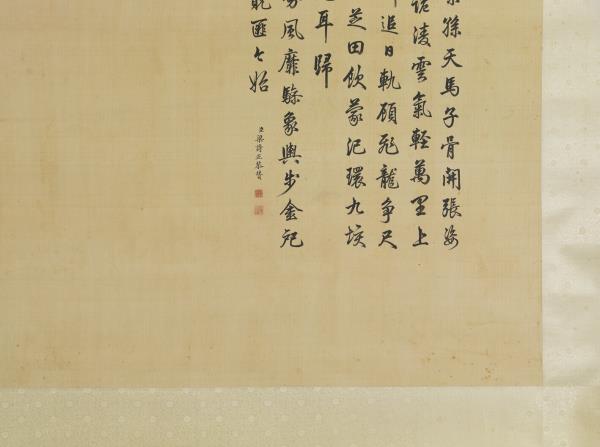 孫天馬子骨開張姿
凌雲氣輕萬里上
追日軌顧飛龍爭尺
芝田飲蒙汜環九垓
耳歸
風靡象輿步金
貺匪今始
臣梁詩正恭贊